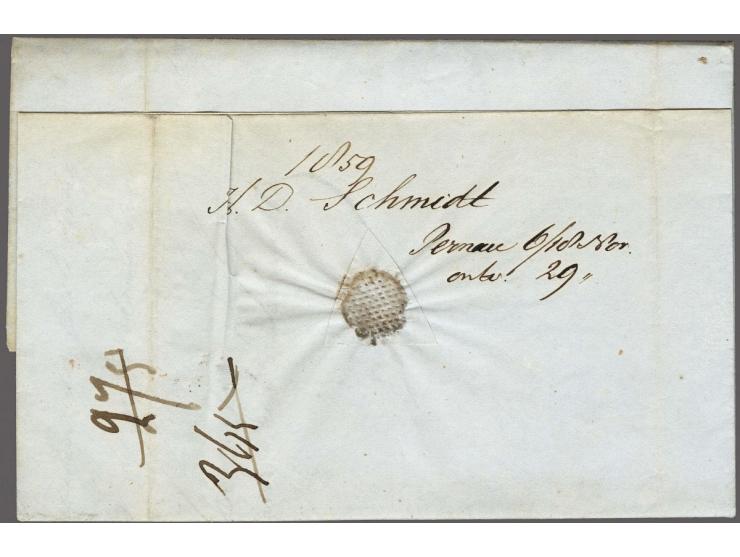 1859
H. D. Schmidt
Pernau 6/18 Nov.
ontv. 29 "